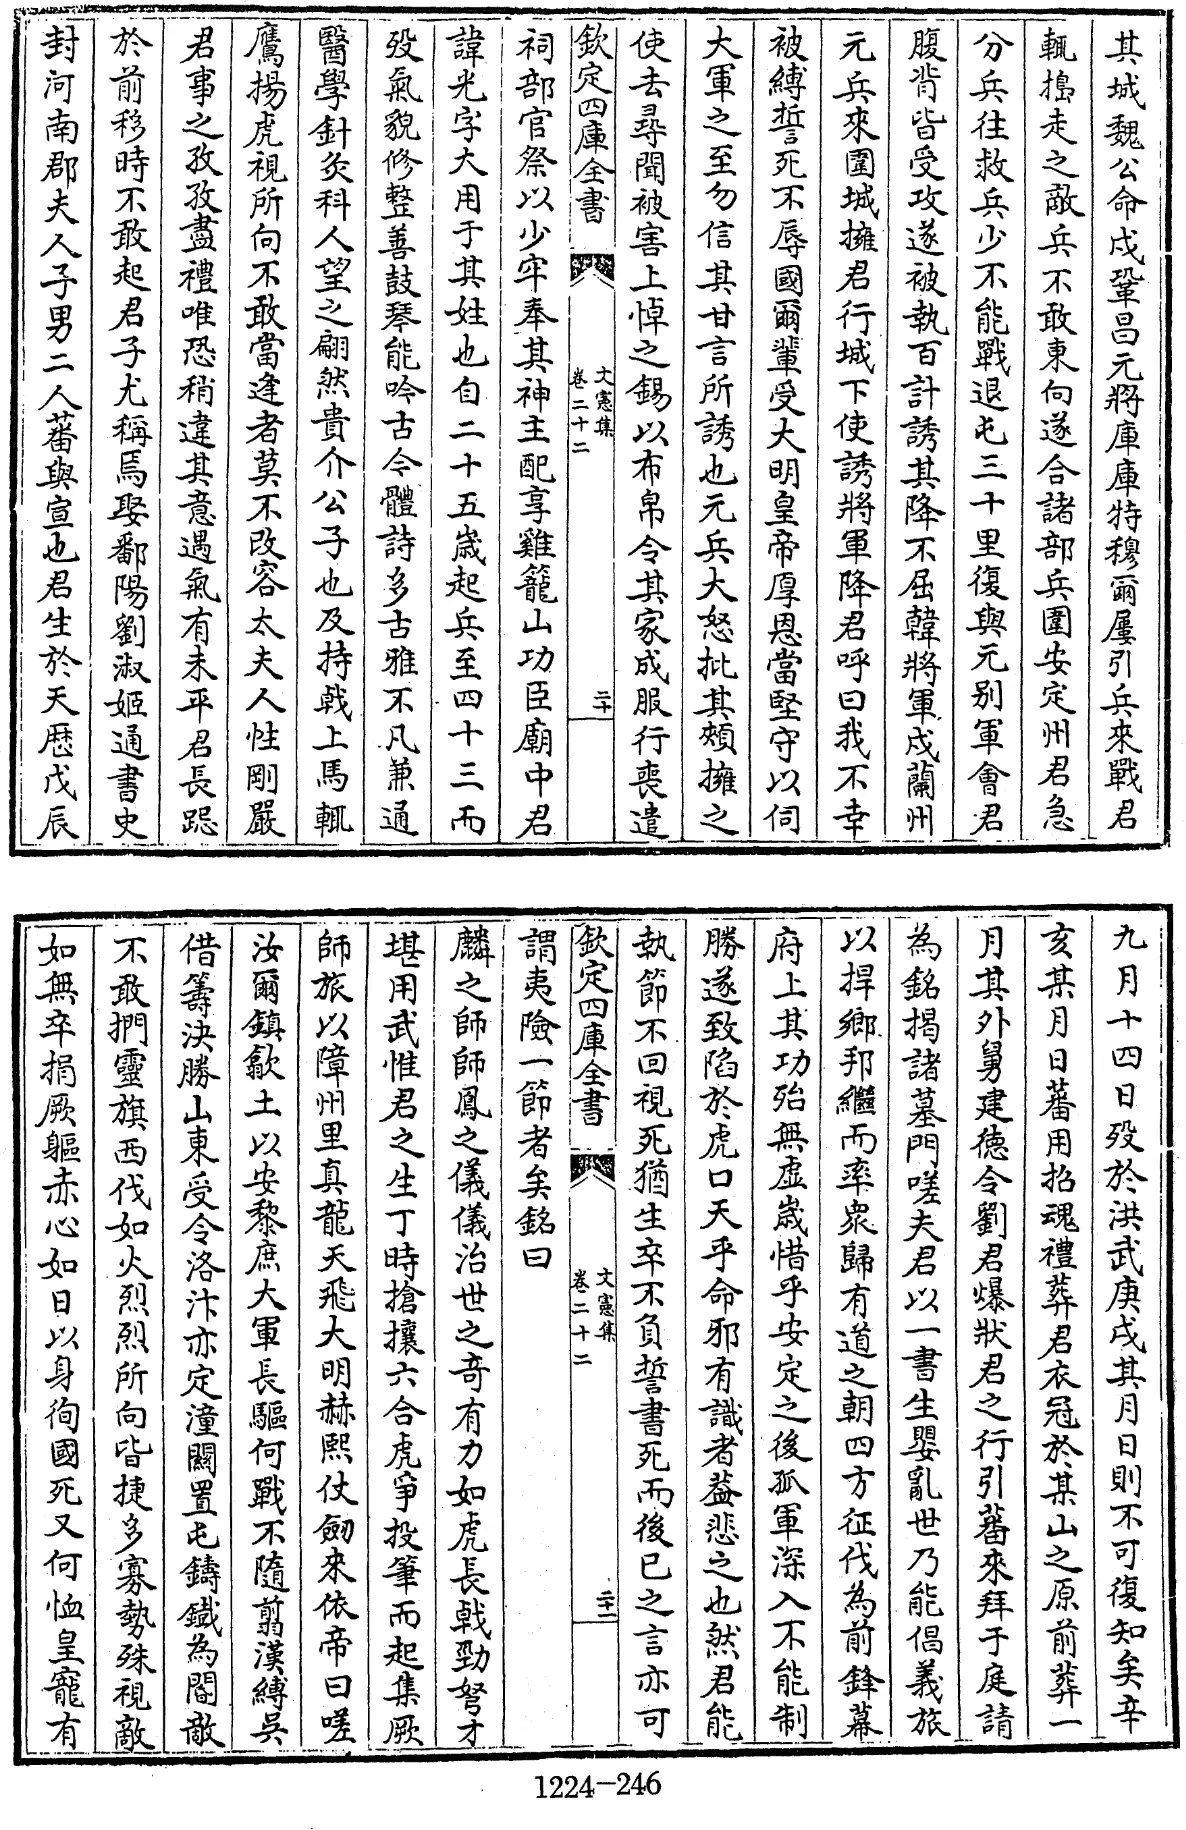 其城魏公命戍鞏昌元將庫庫特穆爾屢引兵來戰君
輒搗走之敵兵不敢東向遂合諸部兵圍安定州君急
分兵往救兵少不能戰退屯三十里復與元别軍會君
腹背皆受攻遂被執百計誘其降不屈韓將軍戍蘭州
元兵來圍城擁君行城下使誘將軍降君呼曰我不幸
被縛誓死不辱國爾輩受大明皇帝厚恩當堅守以伺
大軍之至勿信其甘言所誘也元兵大怒批其頰擁之
使去尋聞被害上悼之錫以布帛令其家成服行喪遣
欽定四庫全書
文憲集
卷二十二
二十
祠部官祭以少牢奉其神主配享雞籠山功臣廟中君
諱光字大用于其姓也自二十五歲起兵至四十三而
歿氣貌修整善鼓琴能吟古今體詩多古雅不凡兼通
醫學針灸科人望之翩然貴介公子也及持戟上馬輒
鷹揚虎視所向不敢當逢者莫不改容太夫人性剛嚴
君事之孜孜盡禮唯恐稍違其意遇氣有未平君長跽
於前移時不敢起君子尤稱焉娶鄱陽劉淑姬通書史
封河南郡夫人子男二人蕃與宣也君生於天歷戊辰
九月十四日歿於洪武庚戌其月日則不可復知矣辛
亥某月日蕃用招魂禮葬君衣冠於某山之原前葬一
月其外舅建德令劉君爆狀君之行引蕃來拜于庭請
為銘揭諸墓門嗟夫君以一書生嬰亂世乃能倡義旅
以捍鄉邦繼而率衆歸有道之朝四方征伐為前鋒幕
府上其功殆無虚歲惜乎安定之後孤軍深入不能制
勝遂致陷於虎口天乎命邪有識者葢悲之也然君能
執節不回視死猶生卒不負誓書死而後已之言亦可
欽定四庫全書
文憲集
卷二十二
二十一
謂夷險一節者矣銘曰
麟之師師鳳之儀儀治世之奇有力如虎長戟勁弩才
堪用武惟君之生丁時搶攘六合虎爭投筆而起集厥
師旅以障州里真龍天飛大明赫熙仗劒來依帝曰嗟
汝爾鎮歙土以安黎庶大軍長驅何戰不隨翦漢縛吳
借籌決勝山東受令洛汴亦定潼關置屯鑄鐵為閽敵
不敢捫靈旗西伐如火烈烈所向皆捷多寡勢殊視敵
如無卒捐厥軀赤心如日以身徇國死又何恤皇寵有
1224-246